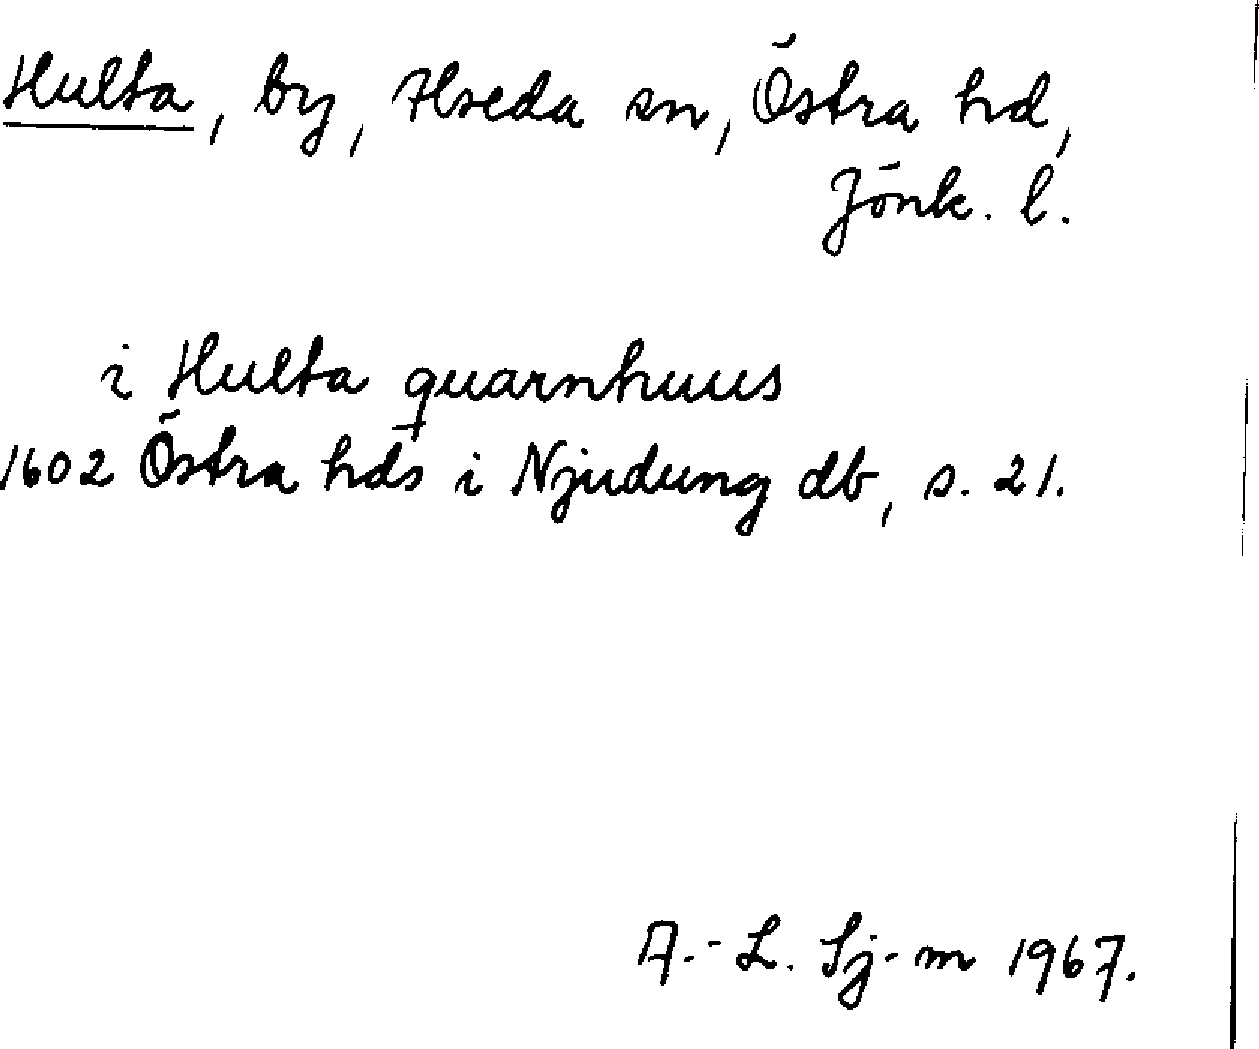 Hulta, by, Alseda sn, Östra hd,
Jönk. l.
i Hulta quarnhuus
1602 Östra hds i Njudung db, s. 21.
A.-L. Sj-m 1967.